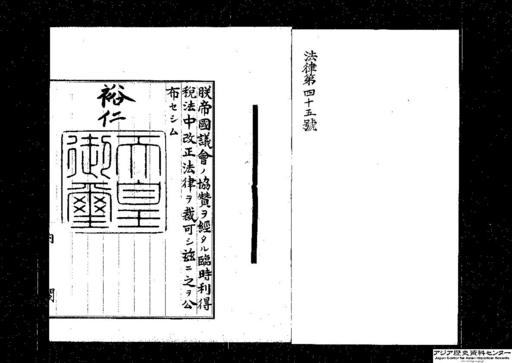 法律第四十五號
朕帝國議會ノ協贊ヲ經タル臨時利得
稅法中改正法律ヲ裁可シ茲ニ之ヲ公
布セシム
裕仁
天皇
御璽
內
閣
アジア歴史資料センター
Japan Center for Asian Historical Records